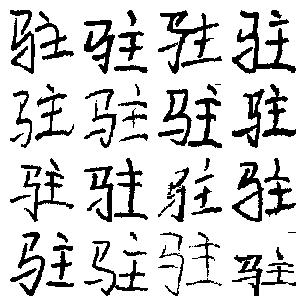 驻驻驻驻
驻驻驻驻
驻驻驻驻
驻驻驻驻